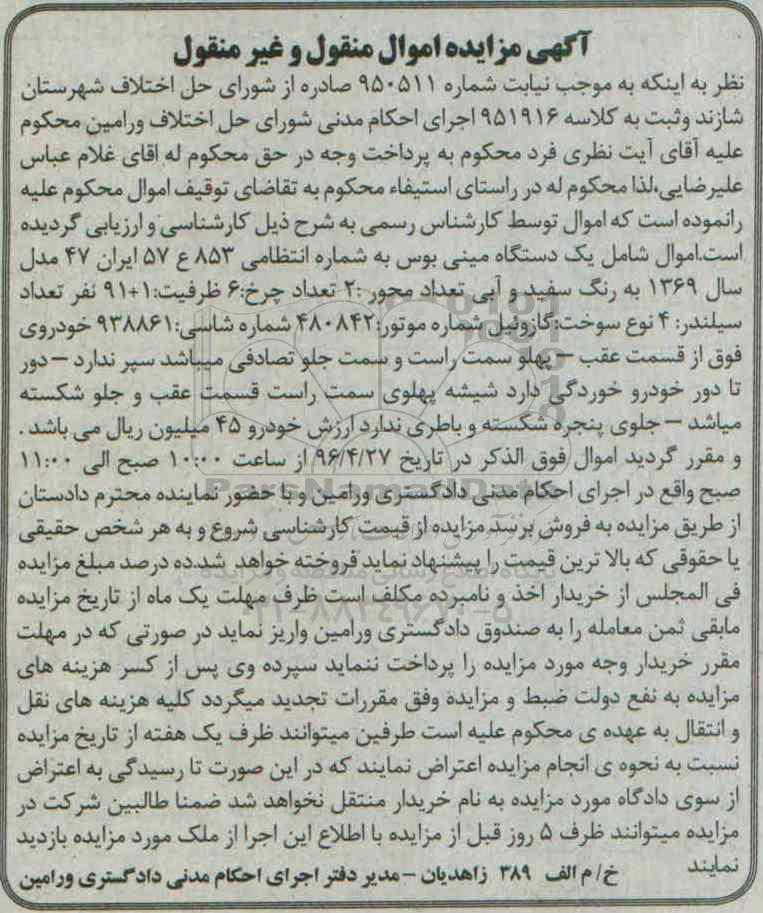 آگهی مزایده اموال منقول و غیر منقول
نظر به اینکه به موجب نیابت شماره ۹۵۰۵۱۱ صادره از شورای حل اختلاف شهرستان
شازند وثبت به کلاسه ۹۵۱۹۱۶ اجرای احکام مدنی شورای حل اختلاف ورامین محکوم
علیه آقای آیت نظری فرد محکوم به پرداخت وجه در حق محکوم له اقای غلام عباس
علیرضایی،لذا محکوم له در راستای استیفاء محکوم به تقاضای توقیف اموال محکوم علیه
رانموده است که اموال توسط کارشناس رسمی به شرح ذیل کارشناسی و ارزیابی گردیده
است.اموال شامل یک دستگاه مینی بوس به شماره انتظامی ۸۵۳ ع ۵۷ ایران ۴۷ مدل
سال ۱۳۶۹ به رنگ سفید و آبی تعداد محور :۲ تعداد چرخ:۶ ظرفیت:۱+۹۱ نفر تعداد
سیلندر: ۴ نوع سوخت:گازوئیل شماره موتور:۴۸۰۸۴۲ شماره شاسی:۹۳۸۸۶۱ خودروی
فوق از قسمت عقب – پهلو سمت راست و سمت جلو تصادفی میباشد سپر ندارد – دور
تا دور خودرو خوردگی دارد شیشه پهلوی سمت راست قسمت عقب و جلو شکسته
میاشد – جلوی پنجره شکسته و باطری ندارد ارزش خودرو ۴۵ میلیون ریال می باشد .
و مقرر گردید اموال فوق الذکر در تاریخ ۹۶/۴/۲۷ از ساعت ۱۰:۰۰ صبح الی ۱۱:۰۰
صبح واقع در اجرای احکام مدنی دادگستری ورامین و با حضور نماینده محترم دادستان
از طریق مزایده به فروش برسد مزایده از قیمت کارشناسی شروع و به هر شخص حقیقی
یا حقوقی که بالا ترین قیمت را پیشنهاد نماید فروخته خواهد شد.ده درصد مبلغ مزایده
فی المجلس از خریدار اخذ و نامبرده مکلف است ظرف مهلت یک ماه از تاریخ مزایده
مابقی ثمن معامله را به صندوق دادگستری ورامین واریز نماید در صورتی که در مهلت
مقرر خریدار وجه مورد مزایده را پرداخت ننماید سپرده وی پس از کسر هزینه های
مزایده به نفع دولت ضبط و مزایده وفق مقررات تجدید میگردد کلیه هزینه های نقل
و انتقال به عهده ی محکوم علیه است طرفین میتوانند ظرف یک هفته از تاریخ مزایده
نسبت به نحوه ی انجام مزایده اعتراض نمایند که در این صورت تا رسیدگی به اعتراض
از سوی دادگاه مورد مزایده به نام خریدار منتقل نخواهد شد ضمنا طالبین شرکت در
مزایده میتوانند ظرف ۵ روز قبل از مزایده با اطلاع این اجرا از ملک مورد مزایده بازدید
نمایند
خ/ م الف ۳۸۹ زاهدیان – مدیر دفتر اجرای احکام مدنی دادگستری ورامین
ParsNamadData